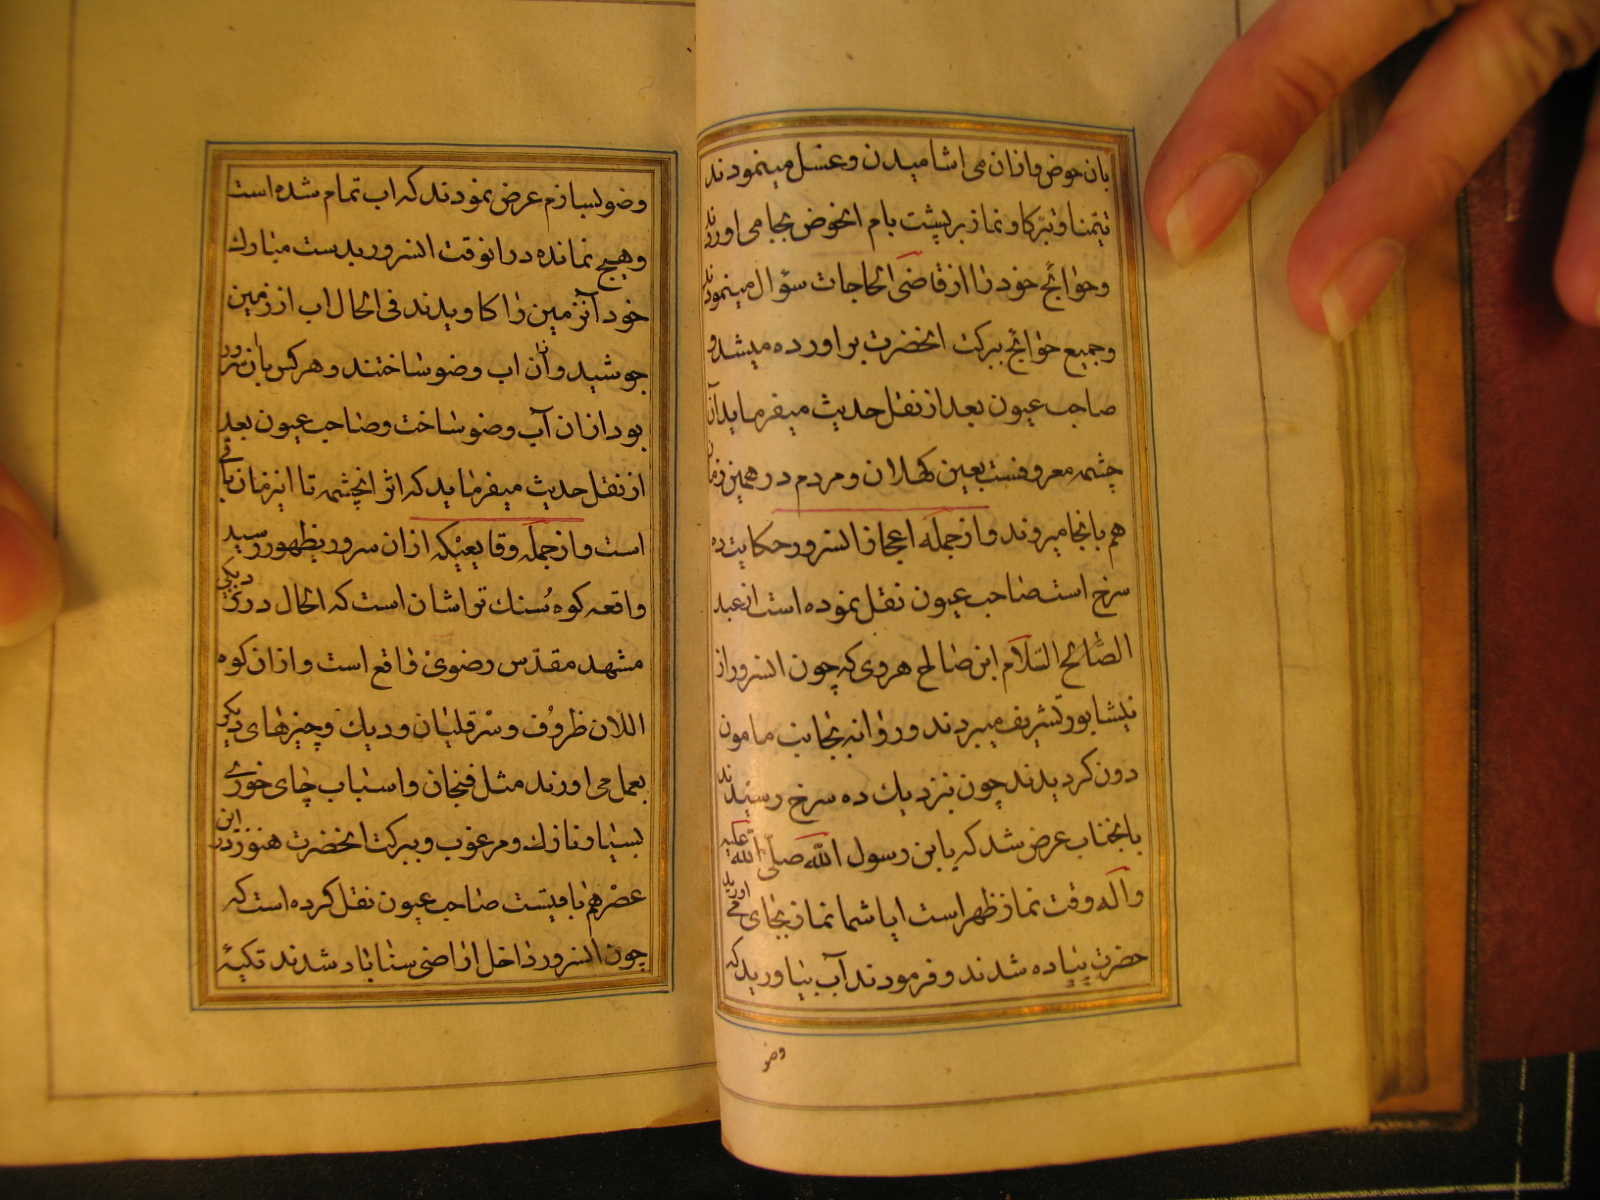 بان حوض و ازان می اشامیدن و غسل مینمودند
تیمنا و تبرکا و نماز بر پشت بام انحوض بجا می اورند
و حوائج خود را از قاضی الحاجات سؤال مینمودند
و جمیع حوائج ببرکت انحضرت براورده میشد و
صاحب عیون بعد از نقل حدیث میفرماید آن
چشمه معروفست بعین کهلان و مردم در همین زمان
هم بانجا میروند و از جمله اعجاز انسرور حکایت ده
سرخ است صاحب عیون نقل نموده است از عبد
الصالح السلام ابن صالح هروی که چون انسرور از
نیشابور تشریف میبردند و روانه بجانب مامون
دون کردیدند چون نزدیك ده سرخ رسیدند
بانجناب عرض شد که یابن رسول الله صلی الله علیه
و اله وقت نماز ظهر است ایا شما نماز بجای می اورید
حضرت پیاده شدند و فرمودند آب بیاورید که
وضو
وضو بسازم عرض نمودند که اب تمام شده است
و هیچ نمانده در انوقت انسرور بدست مبارك
خود آنزمین را کاویدند فی الحال اب از زمین
جوشید و ازان اب وضو ساختند و هر کس بان سرور
بود ازان آب وضو ساخت و صاحب عیون بعد
از نقل حدیث میفرماید که اثر انچشمه تا اینزمان باقی
است و از جمله وقایعیکه ازان سرور بظهور رسید
واقعه کوه سنك تراشان است که الحال در نزدیکی
مشهد مقدس رضوی واقع است و ازان کوه
اللان ظروف و سر قلیان و دیك و چیزهای دیکر
بعمل می اورند مثل فنجان و اسباب چای خوری
بسیار نازك و مرغوب و ببرکت انحضرت هنوز در این
عصر هم باقیست صاحب عیون نقل کرده است که
چون انسرور داخل اراضی سناباد شدند تکیهٔ